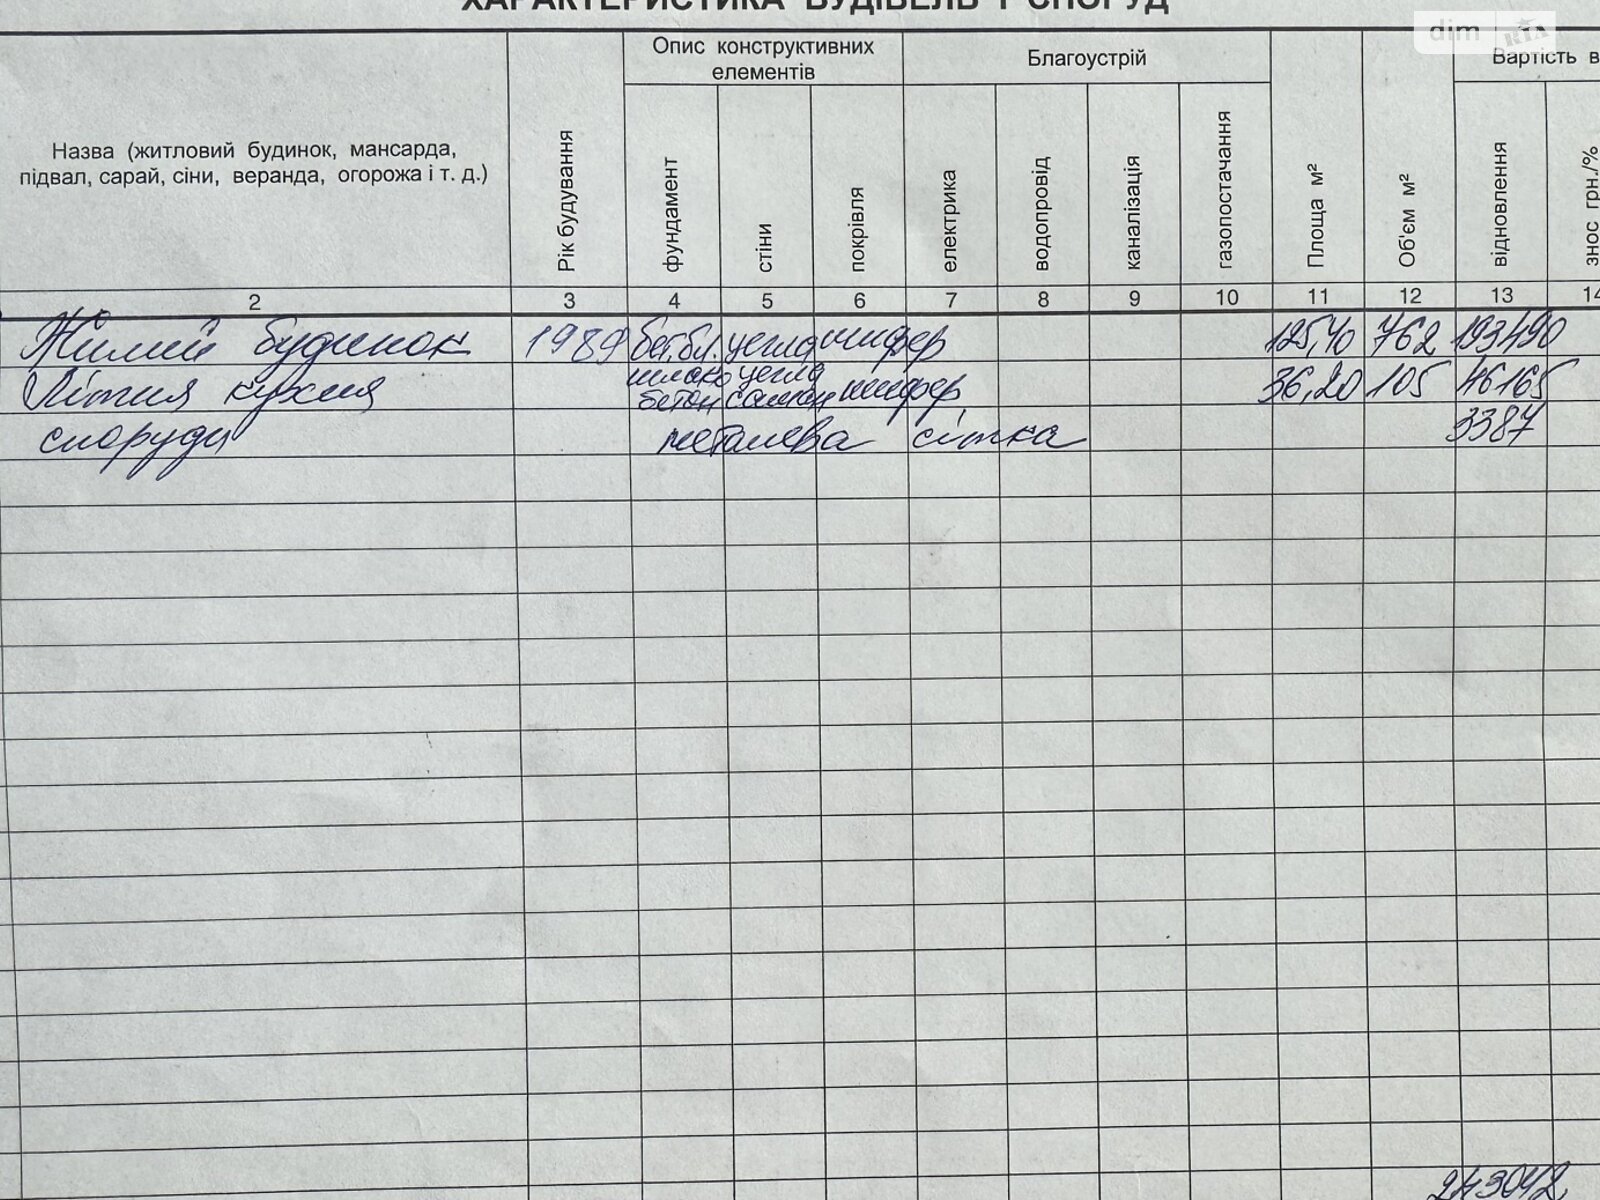 ХАРАКТЕРИСТИКА БУДІВЕЛЬ І СПОРУД
dim RIA
Опис конструктивних елементів
Благоустрій
Вартість в
Назва (житловий будинок, мансарда,
підвал, сарай, сіни, веранда, огорожа і т. д.)
Рік будування
фундамент
стіни
покрівля
електрика
водопровід
каналізація
газопостачання
Площа м²
Об'єм м²
відновлення
знос грн./%
2 3 4 5 6 7 8 9 10 11 12 13 14
Жилий будинок 1989 бет.бл. цегла шифер 125,40 762 193490
Літня кухня шлакобетон цегла саман шифер 36,20 105 46165
споруди металева сітка 3387
243042